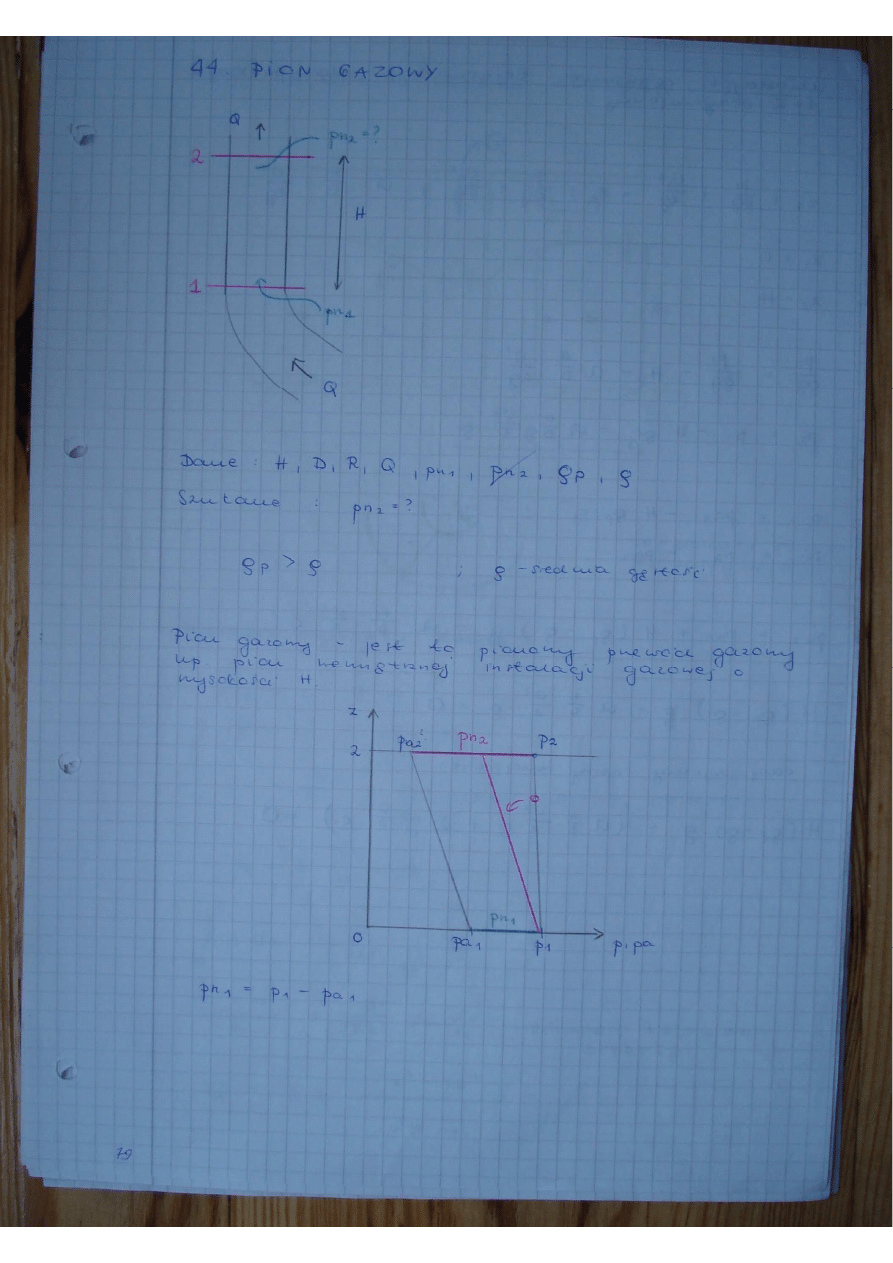 44. PION GAZOWY
Q
pn₂ = ?
2
H
1
pn₁
Q
Dane : H, D, R, Q, pn₁, pn₂, ρp, ρ
Szukane : pn₂ = ?
ρp > ρ ; ρ - średnia gęstość
Pion gazowy - jest to pionowy przewód gazowy
np pion wewnętrznej instalacji gazowej o
wysokości H.
z
2 pa₂ pn₂ p₂
pn₁
0 pa₁ p₁ p, pa
pn₁ = p₁ - pa₁
79